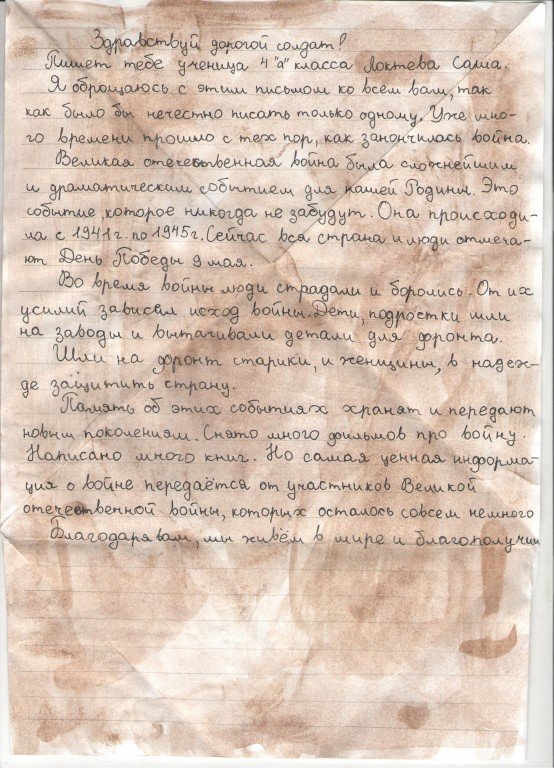 Здравствуй дорогой солдат!
Пишет тебе ученица 4 "а" класса Локтева Саша.
Я обращаюсь с этим письмом ко всем вам, так
как было бы нечестно писать только одному. Уже мно-
го времени прошло с тех пор, как закончилась война.
Великая отечественная война была сложнейшим
и драматическим событием для нашей Родины. Это
событие, которое никогда не забудут. Она происходи-
ла с 1941г. по 1945г. Сейчас вся страна и люди отмеча-
ют День Победы 9 мая.
Во время войны люди страдали и боролись. От их
усилий зависел исход войны. Дети, подростки шли
на заводы и вытачивали детали для фронта.
Шли на фронт старики, и женщины, в надеж-
де защитить страну.
Память об этих событиях хранят и передают
новым поколениям. Снято много фильмов про войну.
Написано много книг. Но самая ценная информа-
ция о войне передаётся от участников Великой
отечественной войны, которых осталось совсем немного
Благодаря вам, мы живём в мире и благополучии